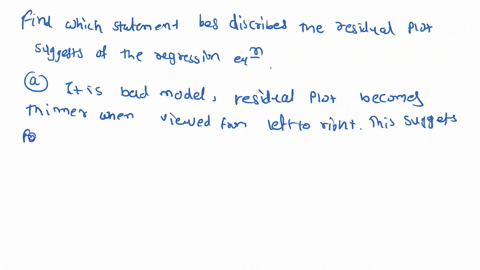 Find which statement bes discribes the residual plot
suggests of the regression eqn.
(a) It is bad model, residual plot becomes
thinner when viewed from left to right. This suggests
Po